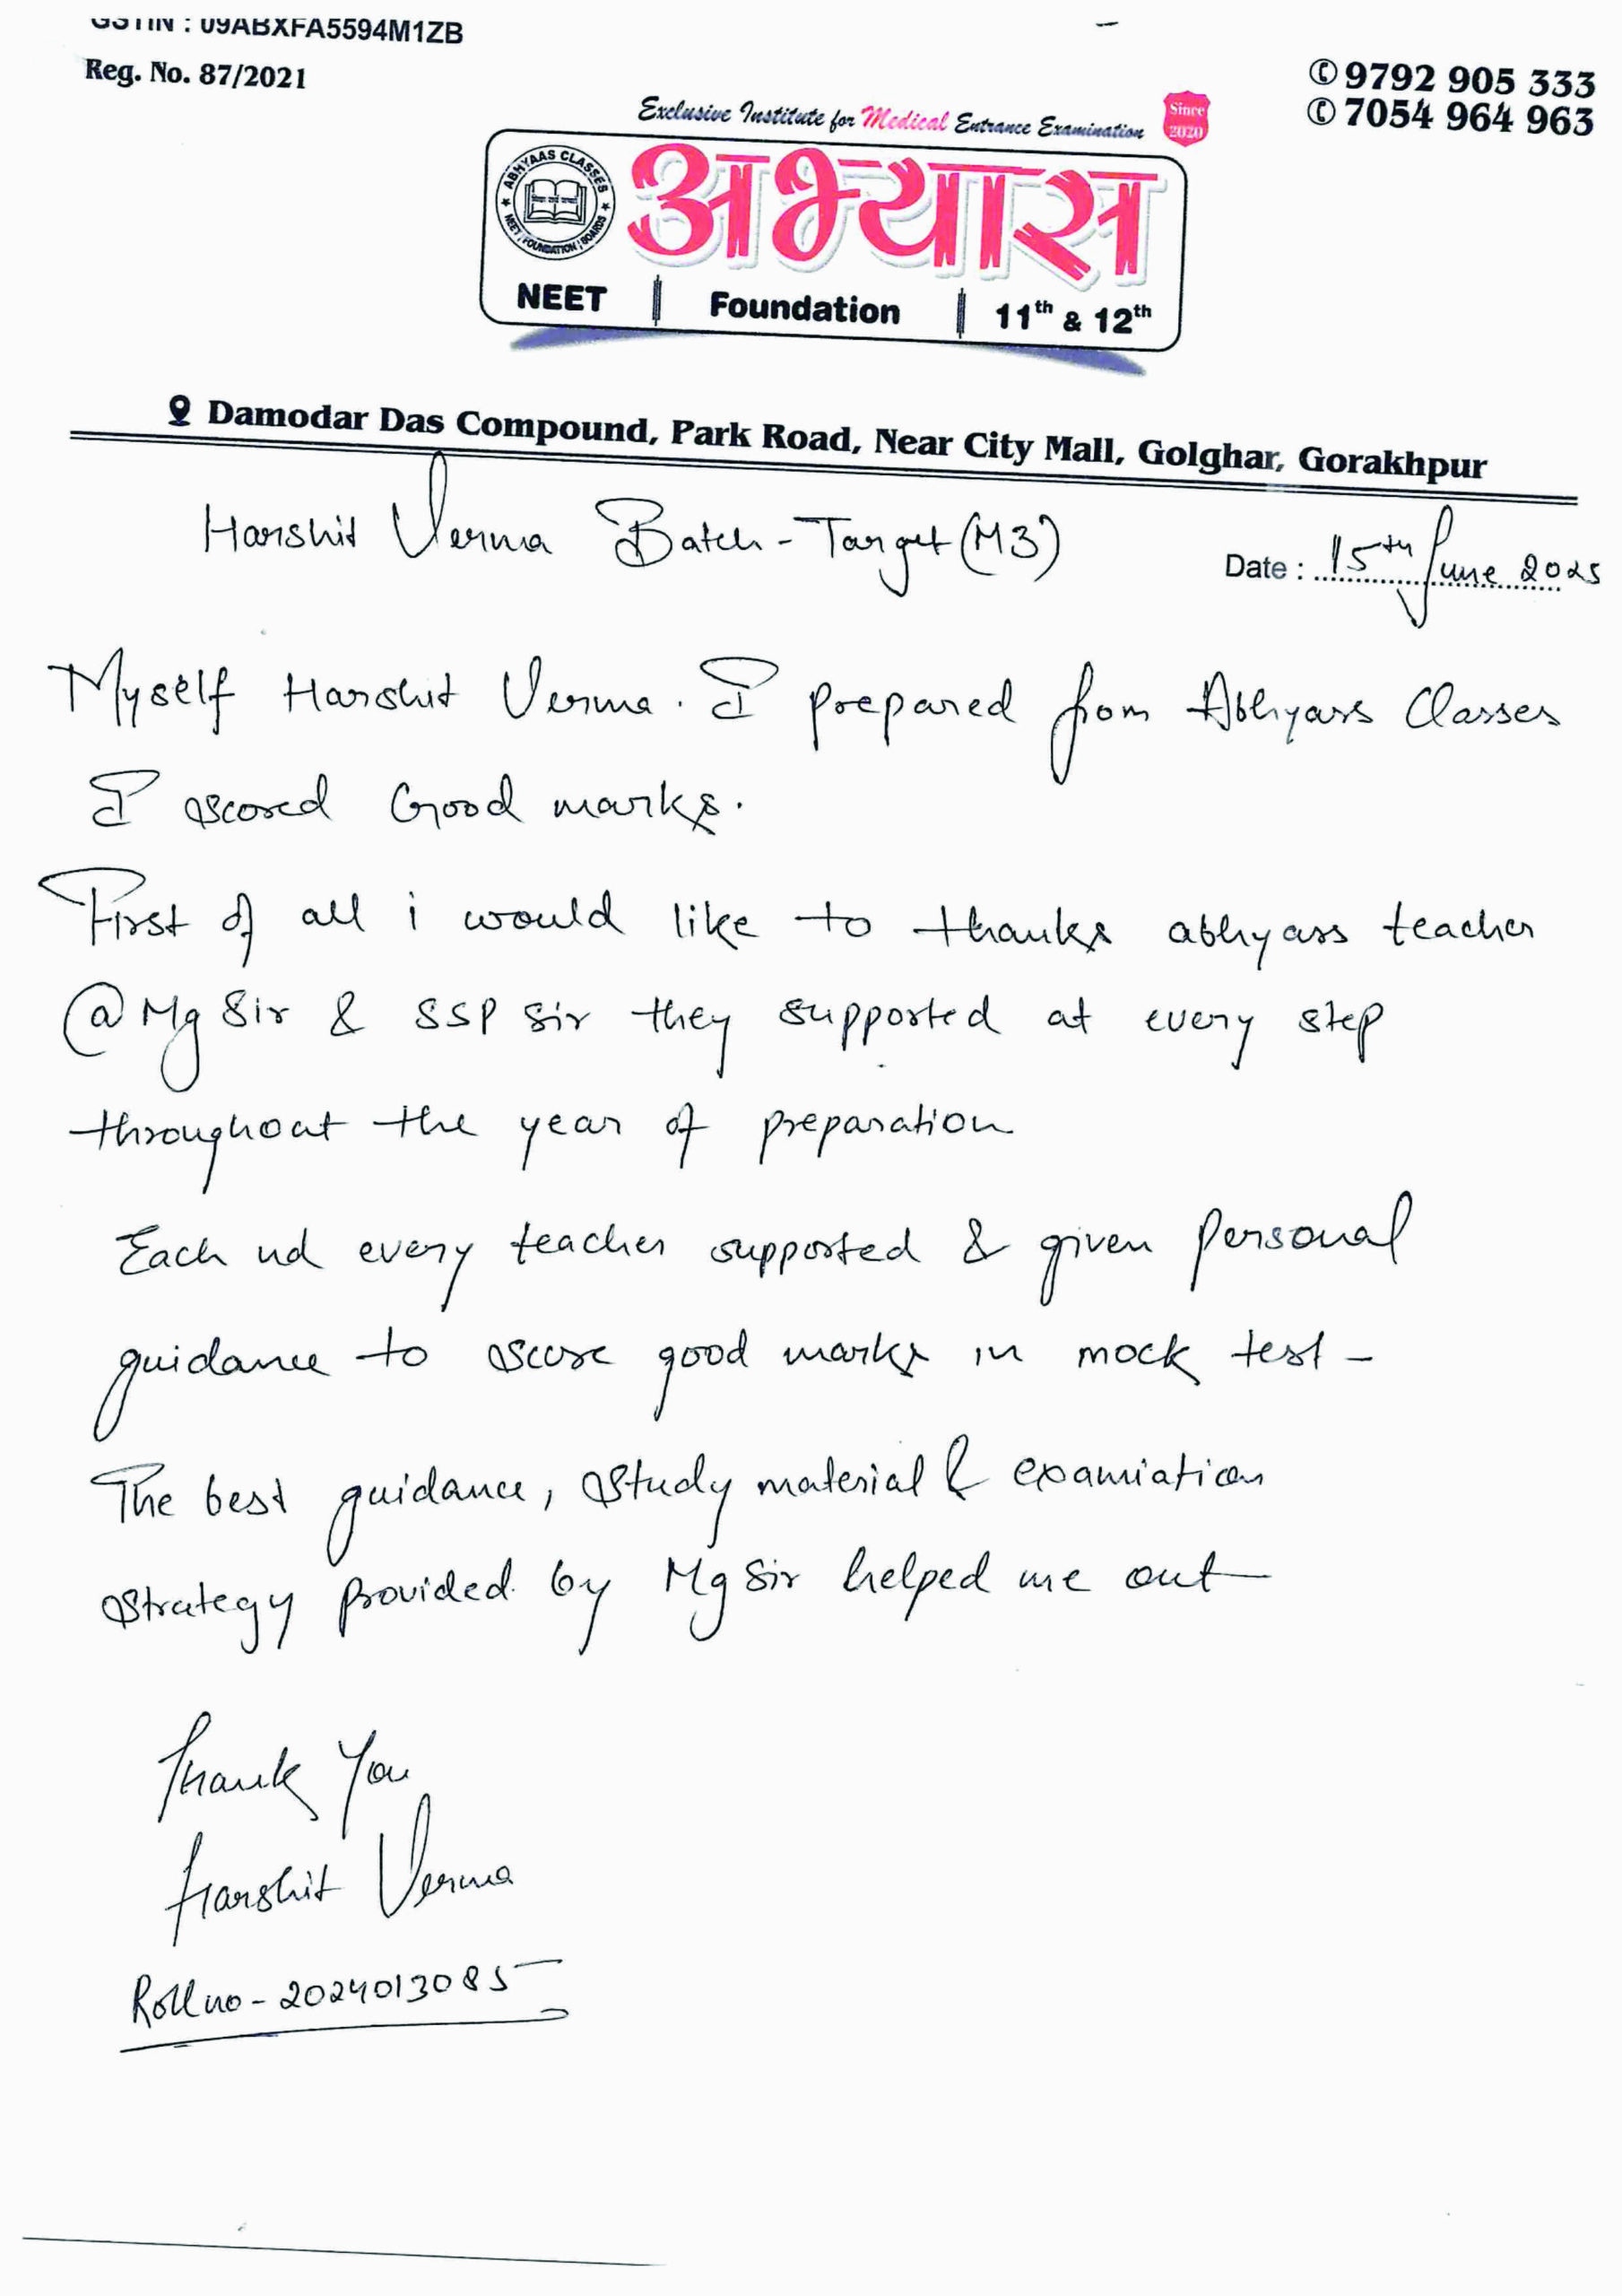 GSTIN : 09ABXFA5594M1ZB
Reg. No. 87/2021
9792 905 333
7054 964 963
Exclusive Institute for Medical Entrance Examination
Since 2020
ABHYAAS CLASSES
NEET | FOUNDATION | BOARDS
अभ्यास
NEET | Foundation | 11th & 12th
Damodar Das Compound, Park Road, Near City Mall, Golghar, Gorakhpur
Harshit Verma Batch - Target (M3)
Date : 15th June 2025
Myself Harshit Verma. I prepared from Abhyass Classes
I scored Good marks.
First of all i would like to thanks abhyass teacher
@ Mg Sir & SSP sir they supported at every step
throughout the year of preparation
Each nd every teacher supported & given personal
guidance to score good marks in mock test -
The best guidance, study material & examiation
strategy provided by Mg Sir helped me out
Thank You
Harshit Verma
Roll no - 2024013085